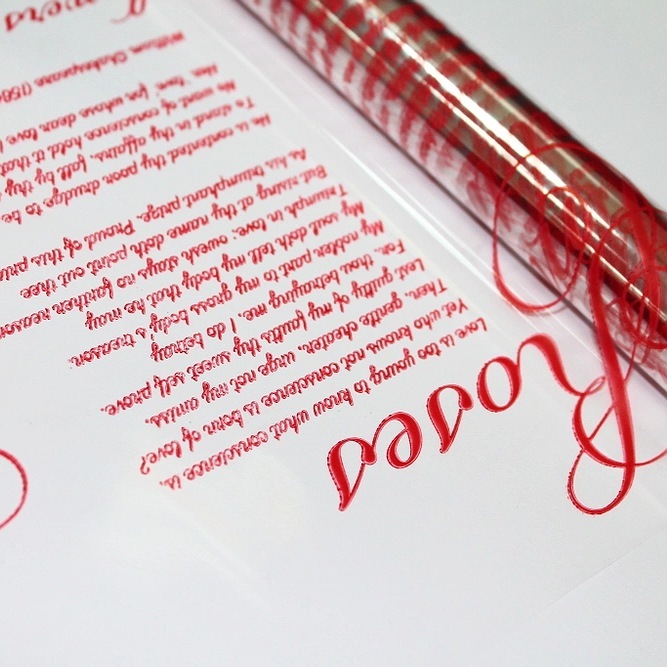 Roses
Love is too young to know what conscience is,
Yet who knows not conscience is born of love?
Then, gentle cheater, urge not my amiss,
Lest guilty of my faults thy sweet self prove.
For, thou betraying me, I do betray
My nobler part to my gross body's treason;
My soul doth tell my body that he may
Triumph in love; stays no farther reason
But rising at thy name doth point out thee
As his triumphant prize. Proud of this
He is contented thy poor drudge to be
To stand in thy affairs, fall by thy
No want of conscience hold it that
Her 'love' for whose dear love
William Shakespeare (156